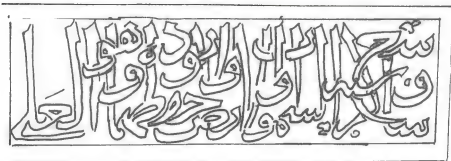 وسع كرسيه السموات والارض ولا يوده حفظهما وهو العلي